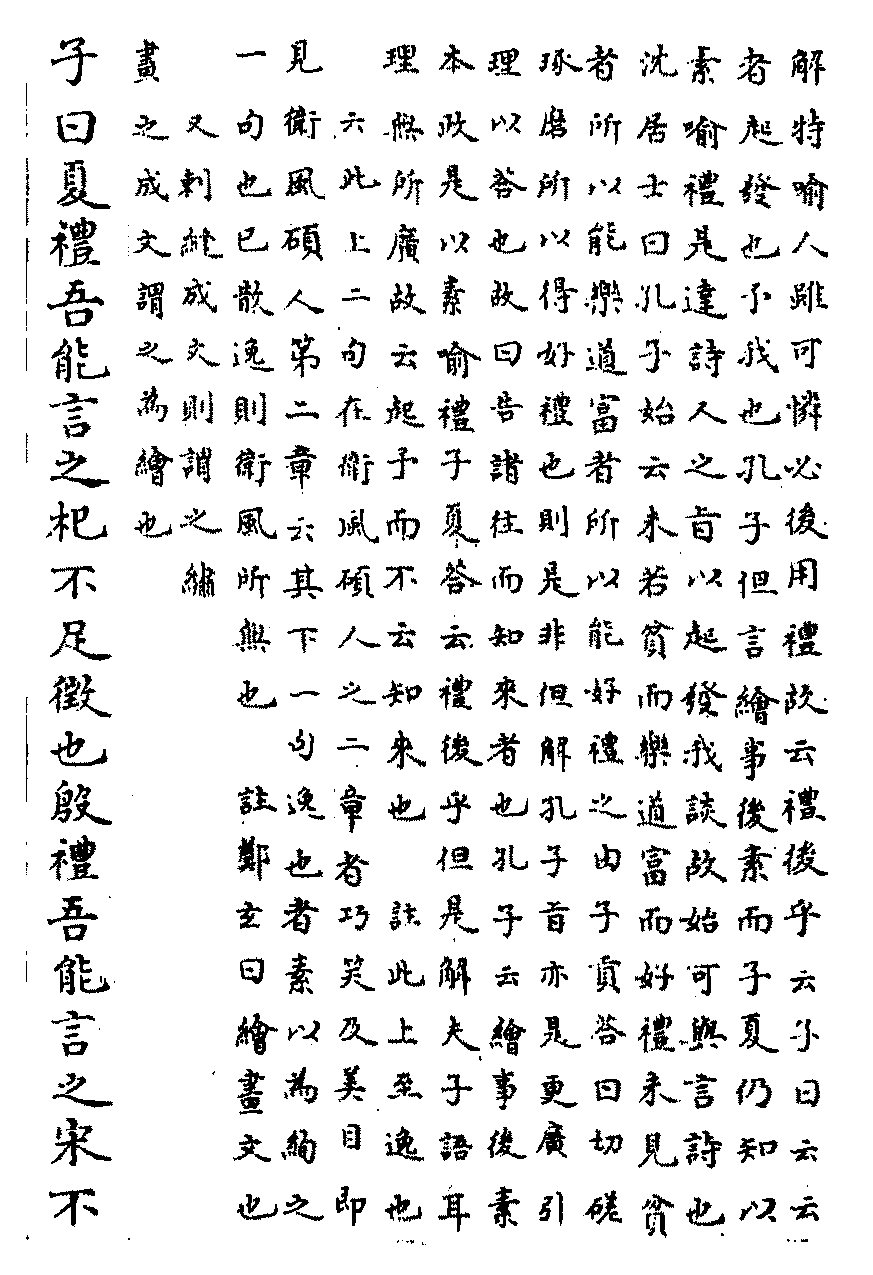 解特喻人雖可憐必後用禮故云禮後乎云子曰云云
者起發也予我也孔子但言繪事後素而子夏仍知以
素喻禮是達詩人之旨以起發我談故始可與言詩也
沈居士曰孔子始云未若貧而樂道富而好禮未見貧
者所以能樂道富者所以能好禮之由子貢荅曰切磋
琢磨所以得好禮也則是非但解孔子旨亦是更廣引
理以荅也故曰告諸往而知來者也孔子云繪事後素
本政是以素喻禮子夏荅云禮後乎但是解夫子語耳
理無所廣故云起予而不云知來也　註此上至逸也
六此上二句在衛風碩人之二章者巧笑及美目即
見衛風碩人第二章云其下一句逸也者素以為絢之
一句也已散逸則衛風所無也　註鄭玄曰繪畫文也
又刺縫成文則謂之繡
畫之成文謂之為繪也
子曰夏禮吾能言之杞不足徵也殷禮吾能言之宋不